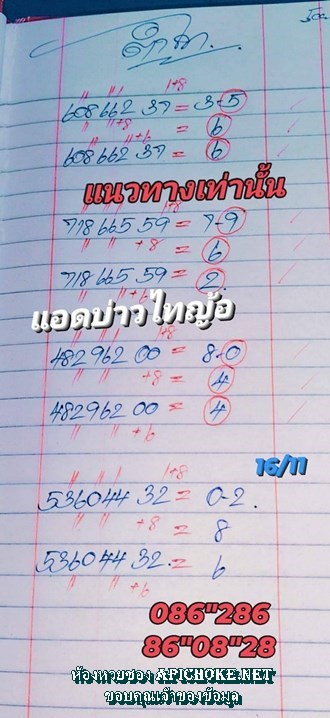 1+8
608 662 37 = 3-5
+8 = 6
+6
608 662 37 = 6
แนวทางเท่านั้น
1+8
718 665 59 = 7-9
+8 = 6
718 665 59 = 2
+6
แอดบ่าวไทญ้อ
1+8
482962 00 = 8-0
+8 = 4
482962 00 = 4
+6
16/11
1+8
536044 32 = 0-2.
+8 = 8
536044 32 = 6
+6
086"286
86"08"28
ห้องหวยซอง APICHOKE.NET
ขอบคุณเจ้าของข้อมูล